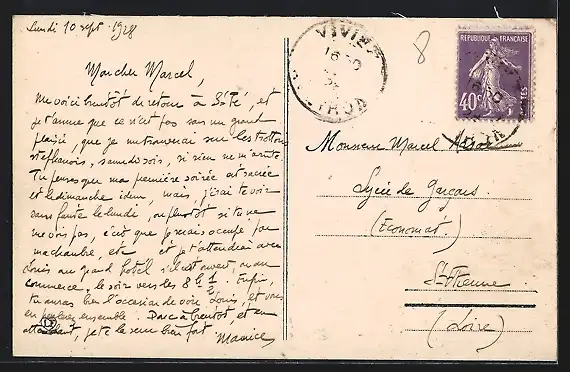 Lundi 10 sept. 1928
Mon cher Marcel,
Me voici bientôt de retour à St-Ete, et
je t'avoue que ce n'est pas sans un grand
plaisir, que je me trouverai sur les trottoirs
samedi soir, si rien ne m'arrête.
Tu penses que ma première soirée est sacrée
et le dimanche idem, mais, j'irai te voir
sans faute le lundi, ou plutôt si tu ne
me vois pas, c'est que je serais occupé par
ma chambre, etc et je t'attendrai avec
Louis au grand hôtel s'il est ouvert, ou au
commerce, le soir vers les 8h 1/2. Enfin,
tu auras bien l'occasion de voir Louis, et vous
en parlerez ensemble. Donc à bientôt, et en
attendant, je te la serre bien fort
Maurice
8
VIVIE
AVEYRON
RÉPUBLIQUE FRANÇAISE
40c
POSTES
Monsieur Marcel
Lycée de Garçons
(Economat)
St-Etienne
(Loire)